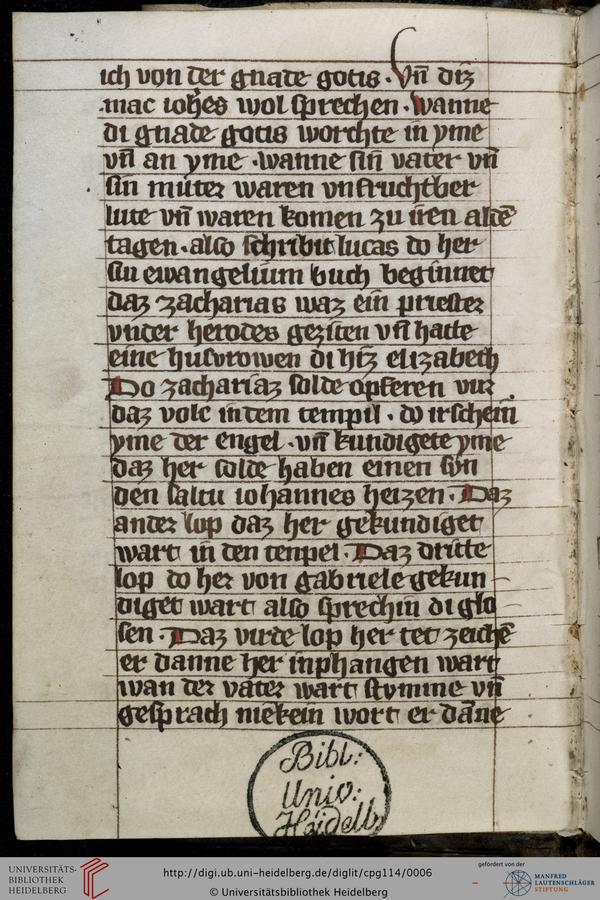 ich von der gnade gotis · Vn̄ diz
mac ioh̄es wol sprechen · wanne
di gnade gotis worchte in yme
vn̄ an yme · wanne sin vater vn̄
sin muter waren vnfruchtber
lute vn̄ waren komen zu iren aldē
tagen · also schribit lucas do her
sin ewangelium buch beginnet
daz zacharias waz ein priester
vnder herodes geziten vn̄ hatte
eine husvrowen di hiz elizabeth
Do zachariaz solde opferen vur
daz volc in dem tempil · do irschein
yme der engel · vn̄ kundigete yme
daz her solde haben einen syn
den saltu iohannes heizen · Daz
ander lop daz her gekundiget
wart in den tenpel · Daz dritte
lop do her von gabriele gekun
diget wart also sprechin di glo
sen · Daz virde lop her tet zeichē
er danne her inphangen wart
wan der vater wart stvmme vn̄
gesprach niekein wort er dāne
Bibl:
Univ:
Heidelb
UNIVERSITÄTS-
BIBLIOTHEK
HEIDELBERG
http://digi.ub.uni-heidelberg.de/diglit/cpg114/0006
© Universitätsbibliothek Heidelberg
gefördert von der
MANFRED
LAUTENSCHLÄGER
STIFTUNG